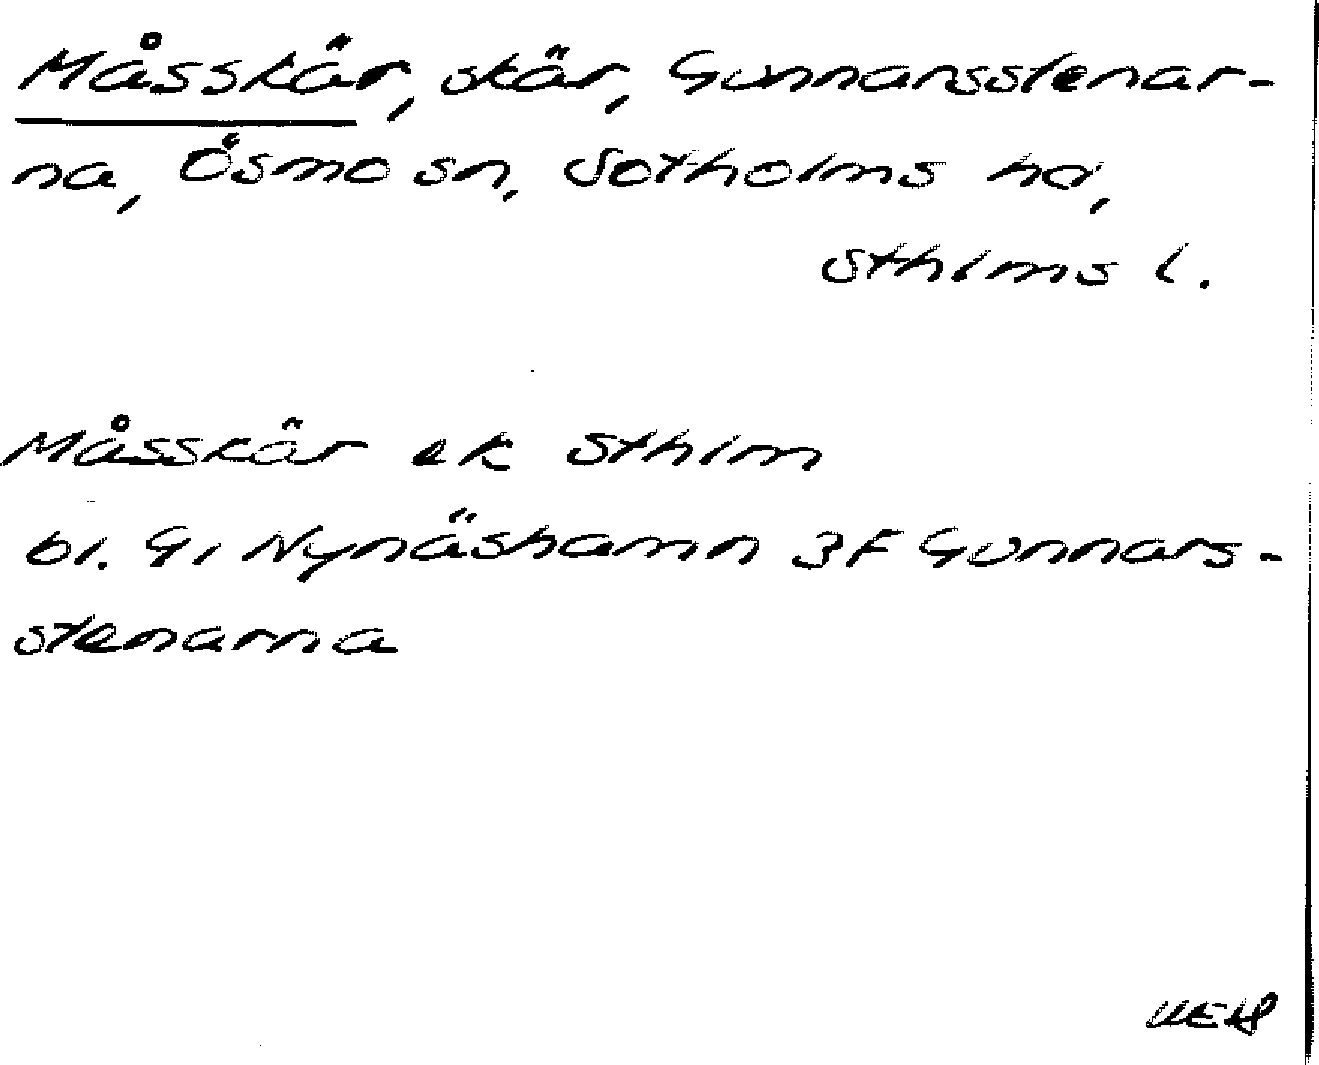 Måsskär, skär, Gunnarsstenar-
na, Ösmo sn, Sotholms hd,
Sthlms l.
Måsskär ek Sthlm
bl. 9i Nynäshamn 3f Gunnars-
stenarna